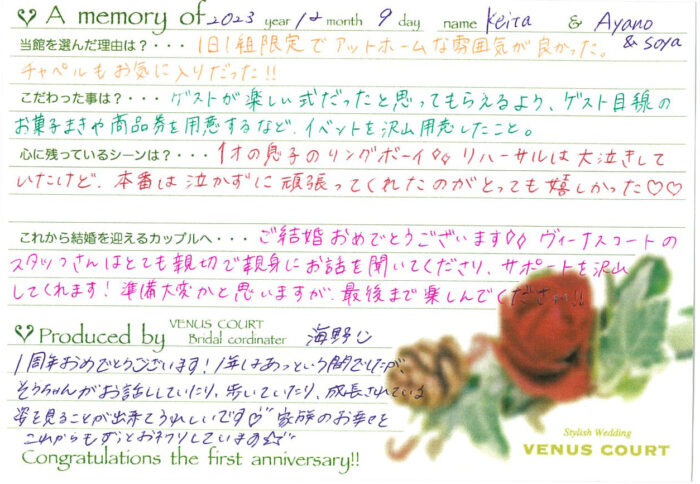 A memory of 2023 year 12 month 9 day name Keita & Ayano & Soya
当館を選んだ理由は？・・・1日1組限定でアットホームな雰囲気が良かった。
チャペルもお気に入りだった!!
こだわった事は？・・・ゲストが楽しい式だったと思ってもらえるよう、ゲスト目線の
お菓子まきや商品券を用意するなど、イベントを沢山用意したこと。
心に残っているシーンは？・・・1才の息子のリングボーイ♢♢ リハーサルは大泣きして
いたけど、本番は泣かずに頑張ってくれたのがとっても嬉しかった♡♡
これから結婚を迎えるカップルへ・・・ご結婚おめでとうございます♢♢ ヴィーナスコートの
スタッフさんはとても親切で親身にお話を聞いてくださり、サポートを沢山
してくれます！準備大変かと思いますが、最後まで楽しんでください!!
Produced by VENUS COURT Bridal cordinater 海野
1周年おめでとうございます！1年はあっという間でしたが、
そうちゃんがお話ししていたり、歩いていたり、成長されている
姿を見ることが出来てうれしいです♡ 家族のお幸せを
これからもずっとお祈りしています
Congratulations the first anniversary!!
Stylish Wedding
VENUS COURT